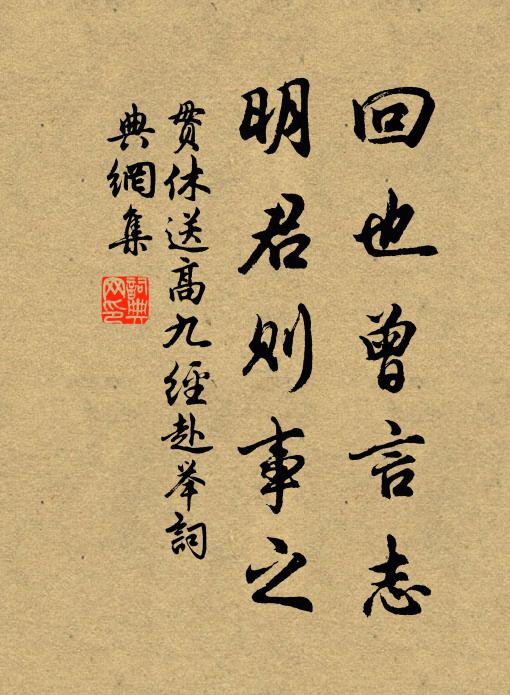 回也曾言志
明君则事之
贯休送高九经赴举词
典网集
词典
网印